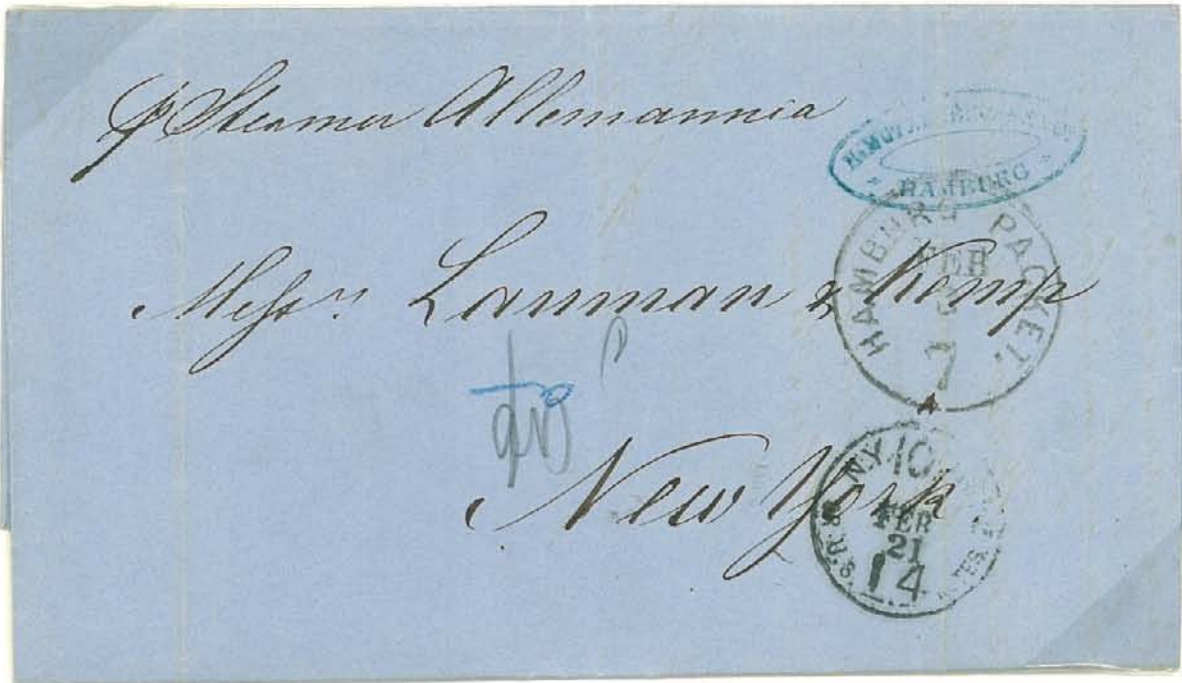 p Steamer Allemannia
HAMBURG
HAMBURG PACKET.
FEB
Messrs. Lanman & Kemp
New York
N.Y. 10
FEB
21
14